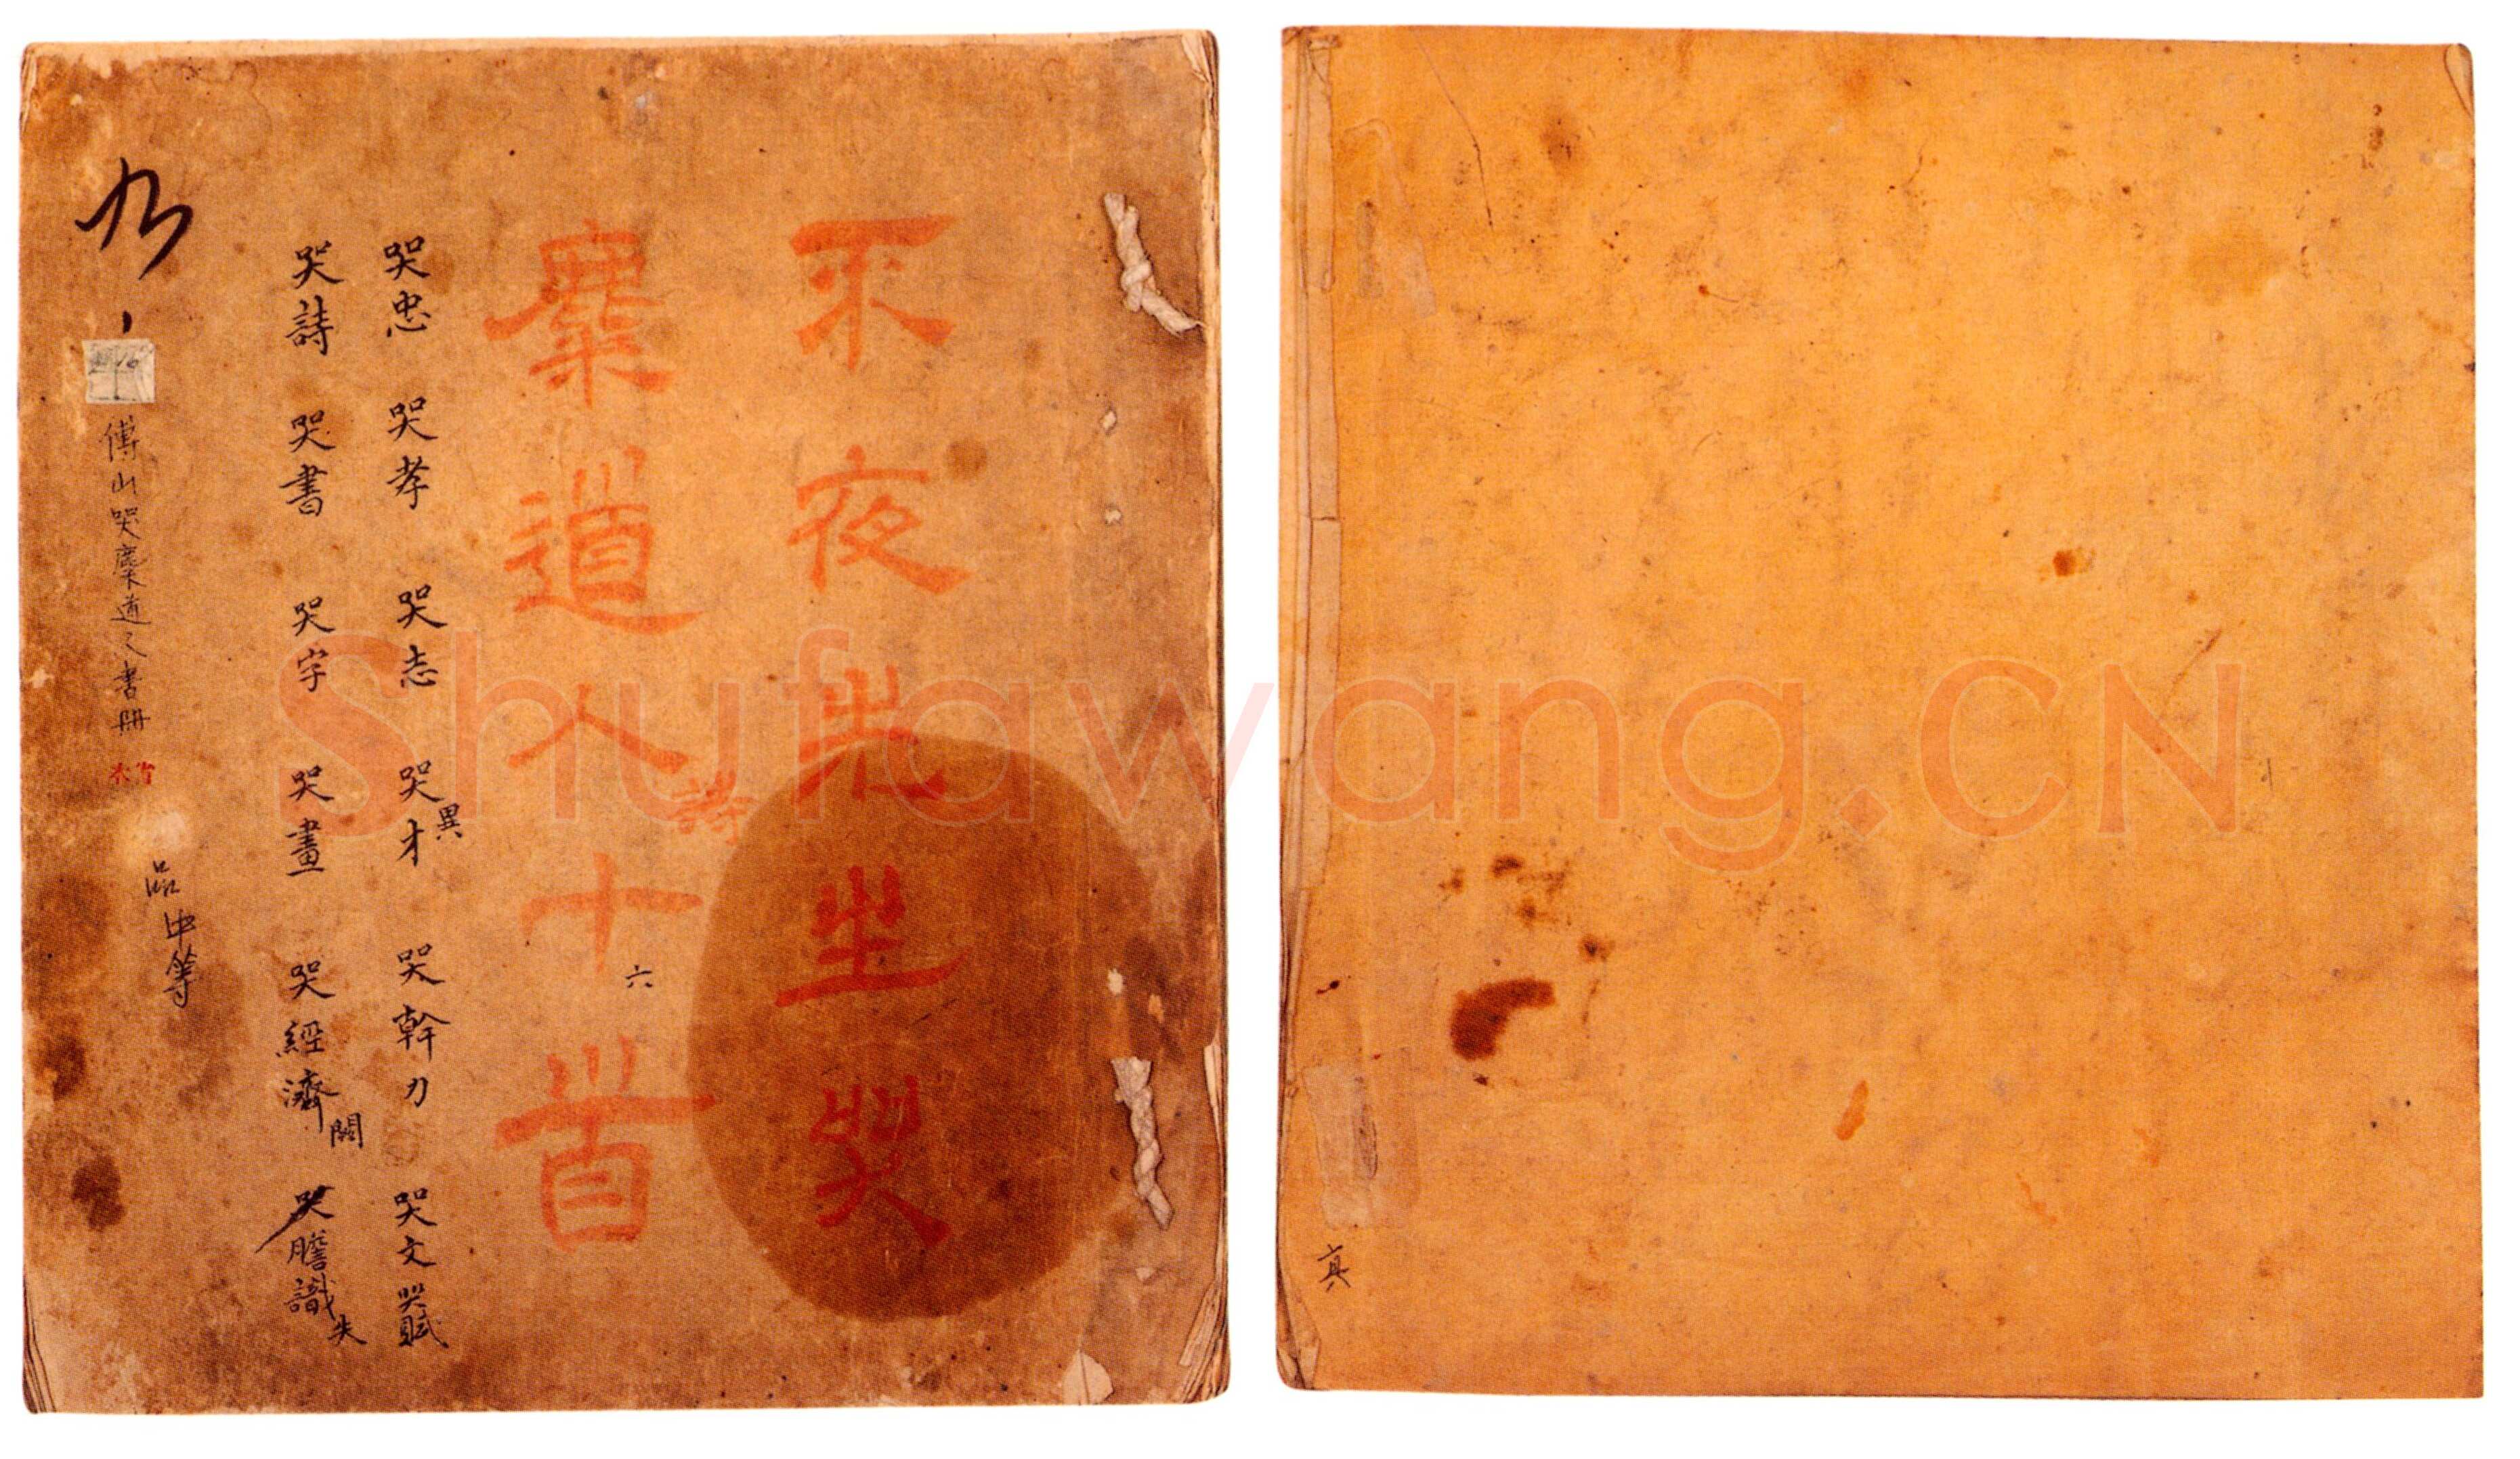 不夜光坐哭
糜道人詩十六首
哭忠 哭孝 哭志 哭異才 哭幹力 哭文 哭賦
哭詩 哭書 哭字 哭畫 哭經濟 闕 哭膽識 失
傅山哭糜道人書册
品中等
真
Shufawang.CN